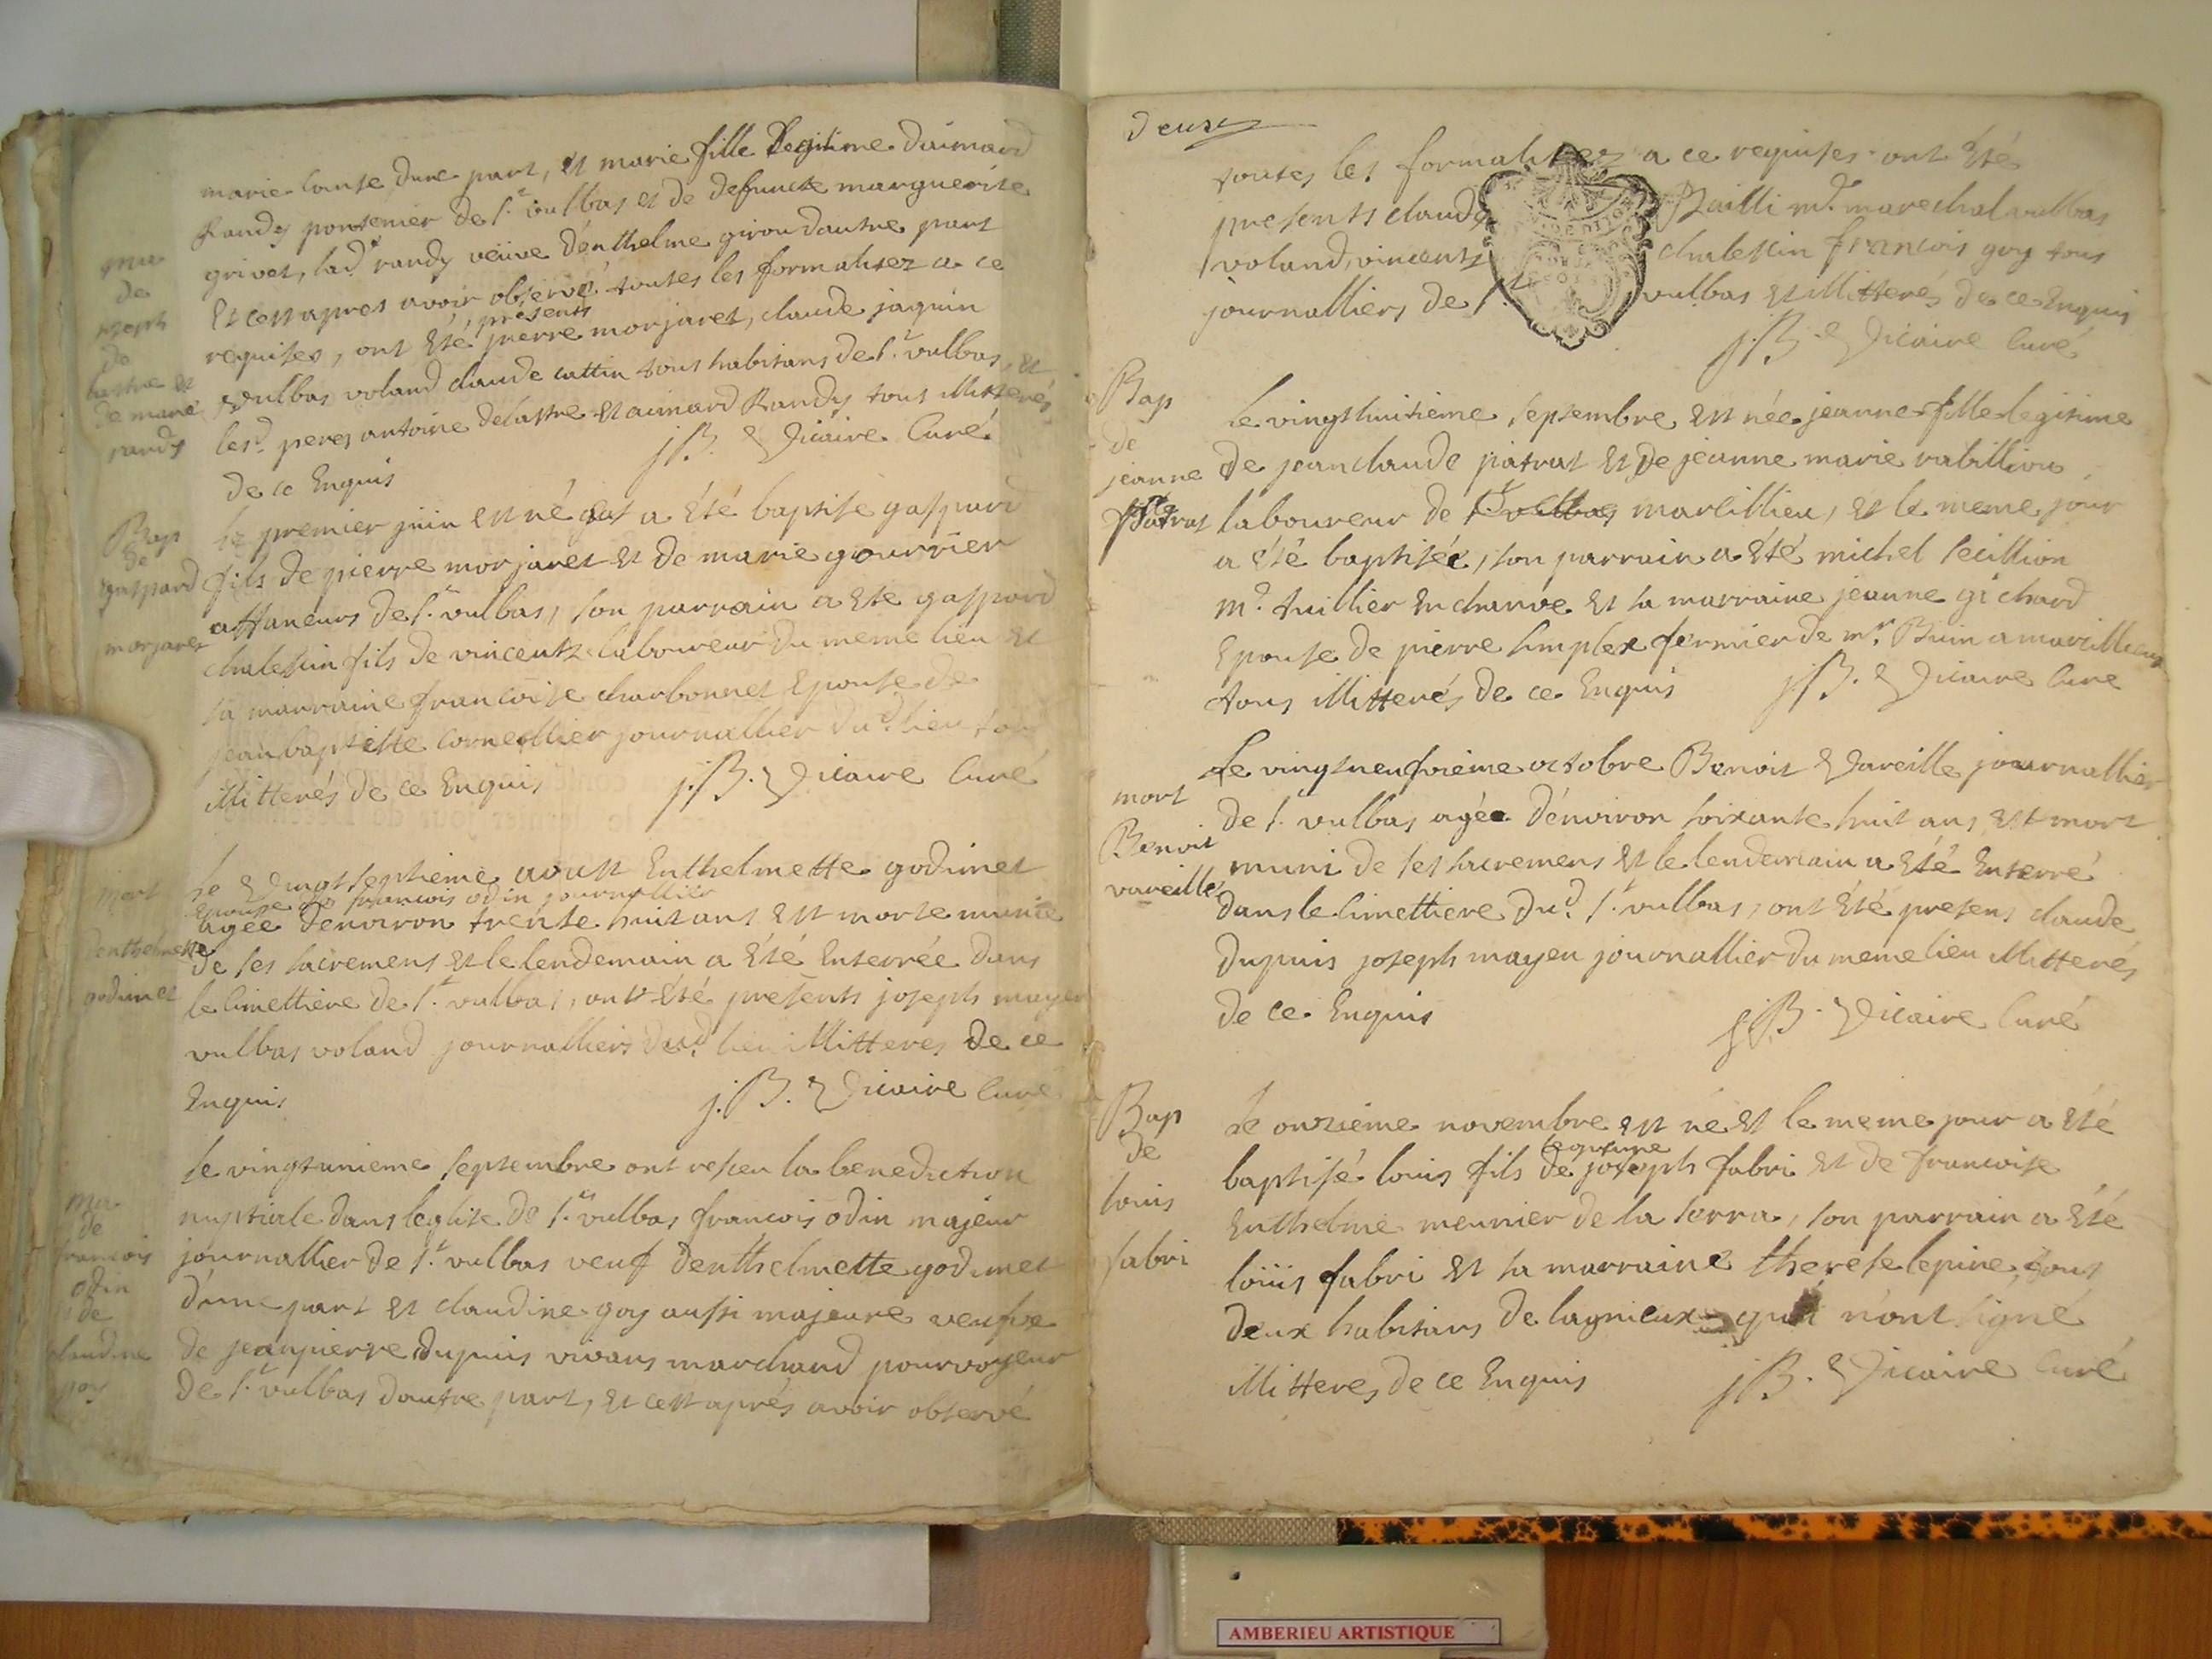 marie louise dune part, et marie fille Legitime daimard
Randy pontenier de st. vulbas et de defuncte marguerite
grivet, lad. randy veuve denthelme girou dautre part
Et cest apres avoir observé toutes les formalitez a ce
requises, ont Eté presents pierre morjaret, claude jaquin
vulbas voland claude cattin tous habitans de st. vulbas, et
lesd. peres antoine delastre et aimard Randy tous illitterés
de ce Enquis
j.B. Vicaire Curé
mar
de
joseph
de
lastre et
de marie
randy
le premier juin est né et a été baptisé gaspard
fils de pierre morjaret et de marie gourrier
affaneurs de st. vulbas, son parrain a ete gaspard
chalettin fils de vincentz laboureur du meme lieu et
sa marraine francoise charbonnet Epouse de
jean baptiste cornellier journallier dud. lieu tous
illitterés de ce Enquis
j.B. Vicaire Curé
Bap
de
gaspard
morjaret
le Vingt septieme aoust Enthelmette godinet
Epouse de francois odin journallier
agée denviron trente huit ans est morte munie
de ses sacremens et le lendemain a été Enterrée dans
le cimettiere de st. vulbas, ont été presents joseph mayen
vulbas voland journalliers dud. lieu illitteres de ce
Enquis
j.B. Vicaire Curé
mort
denthelmette
godinet
le vingtunieme septembre ont resceu la benediction
nuptiale dans leglise de st. vulbas francois odin majeur
journallier de st. vulbas veuf denthelmette godinet
dune part et claudine goy aussi majeure veufve
de jeanpierre dupuis vivans marchand pourvoyeur
de st. vulbas dautre part, et cest aprés avoir observé
mar
de
francois
odin
de
claudine
goy
deux
toutes les formalitez a ce requises ont Eté
presents claude Bailli md. marechal vulbas
voland, vincentz chalettin francois goy tous
journalliers de st. vulbas et illitterés de ce Enquis
j.B. Vicaire Curé
Bap
de
jeanne
Patrat
Le vingthuitieme septembre est née jeanne fille legitime
de jeanclaude patrat et de jeanne marie rabillion
laboureur de st. vulbas marcillieu, et le meme jour
a été baptisée, son parrain a été michel secillion
md. tuillier en chanve et sa marraine jeanne gichard
Epouse de pierre simplex fermier de mr. Buin a marcillieux
tous illitterés de ce Enquis
j.B. Vicaire Curé
Le vingtneufvieme octobre Benoit Vareille journallier
de st. vulbas agée denviron soixante huit ans est mort
muni de ses sacremens et le lendemain a Eté Enterré
dans le cimettiere dud. st. vulbas, ont Eté presens claude
dupuis joseph mayen journallier du meme lieu illitterés
de ce Enquis
j.B. Vicaire Curé
mort
Benoit
vareille
Bap
de
louis
fabri
Le onzieme novembre est né et le meme jour a été
baptisé louis fils legitime de joseph fabri et de francoise
Enthelme meunier de la serra, son parrain a Eté
loüis fabri et sa marraine therese lepine, tous
deux habitans de lagnieux qui n'ont signé
illitteres de ce Enquis
j.B. Vicaire Curé
AMBERIEU ARTISTIQUE